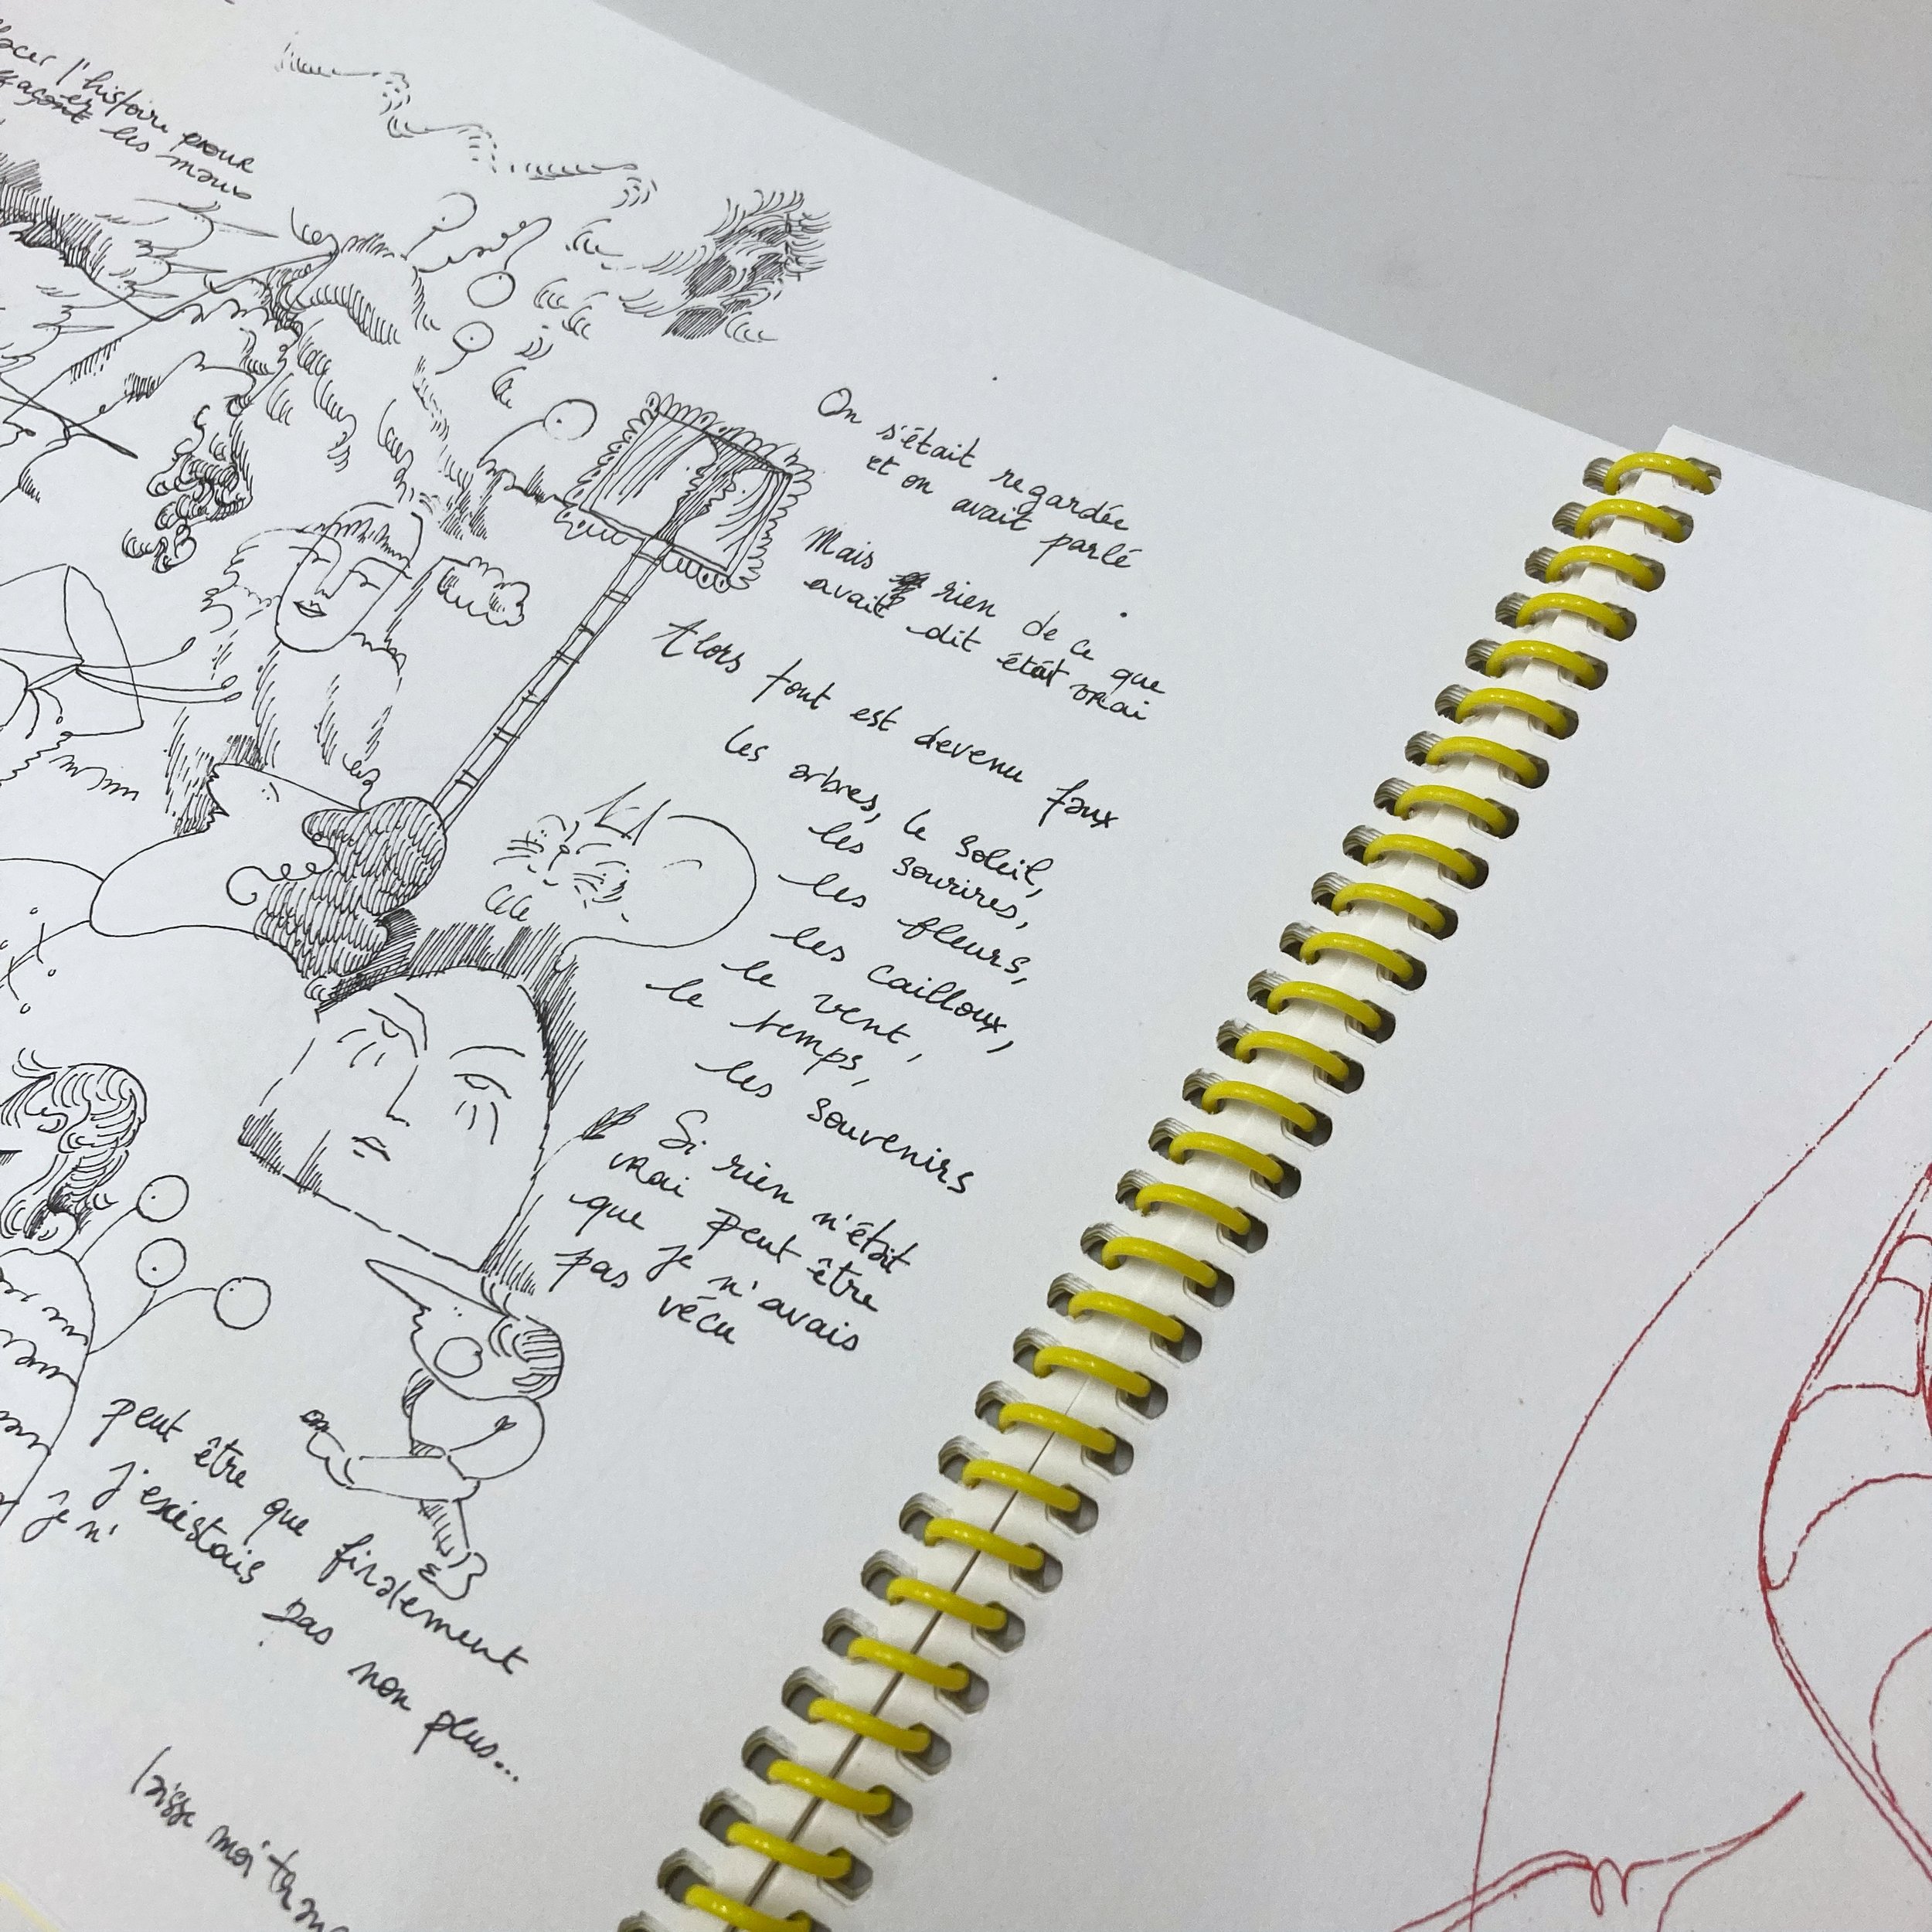 l'histoire pour
les maux
On s'était regardée
et on avait parlé
Mais rien de ce que
avait dit était vrai
Alors tout est devenu faux
les arbres, le soleil,
les sourires,
les fleurs,
les cailloux,
le vent,
le temps,
les souvenirs
Si rien n'était
vrai peut être
que je n'avais
pas vécu
peut être que finalement
j'existais pas non plus...
je n'
laisse moi